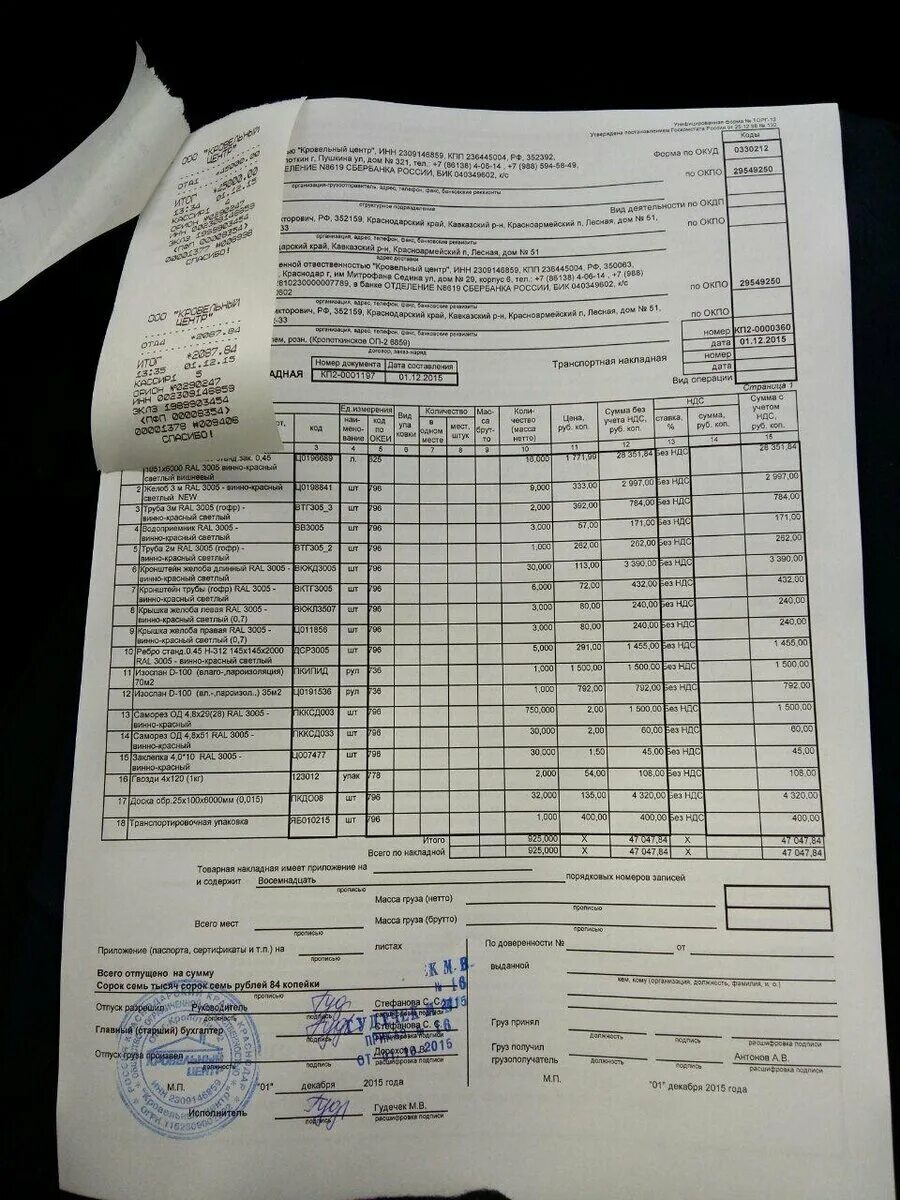 ООО "КРОВЕЛЬНЫЙ
ЦЕНТР"
ОТД1 *45000.00
ИТОГ *45000.00
13:34 01.12.15
КАССИР1 4
ОРИОН №0290247
ИНН 002309146859
ЭКЛЗ 1989903454
<ПФП 00008354>
00001377 #008998
СПАСИБО!
ООО "КРОВЕЛЬНЫЙ
ЦЕНТР"
ОТД4 *2087.84
ИТОГ *2087.84
13:35 01.12.15
КАССИР1 5
ОРИОН №0290247
ИНН 002309146859
ЭКЛЗ 1989903454
<ПФП 00008354>
00001378 #009406
СПАСИБО!
Унифицированная форма № ТОРГ-12
Утверждена постановлением Госкомстата России от 25.12.98 № 132
Коды
Форма по ОКУД 0330212
"Кровельный центр", ИНН 2309146859, КПП 236445004, РФ, 352392,
г, Пушкина ул, дом № 321, тел.: +7 (86138) 4-06-14 , +7 (988) 594-58-49,
№8619 СБЕРБАНКА РОССИИ, БИК 040349602, к/с
по ОКПО 29549250
организация-грузоотправитель, адрес, телефон, факс, банковские реквизиты
структурное подразделение
Вид деятельности по ОКДП
РФ, 352159, Краснодарский край, Кавказский р-н, Красноармейский п, Лесная, дом № 51,
по ОКПО
организация, адрес, телефон, факс, банковские реквизиты
край, Кавказский р-н, Красноармейский п, Лесная, дом № 51
адрес доставки
ответственностью "Кровельный центр", ИНН 2309146859, КПП 236445004, РФ, 350063,
Краснодар г, им Митрофана Седина ул, дом № 29, корпус 6, тел.: +7 (86138) 4-06-14 , +7 (988)
в банке ОТДЕЛЕНИЕ №8619 СБЕРБАНКА РОССИИ, БИК 040349602, к/с
по ОКПО 29549250
организация, адрес, телефон, факс, банковские реквизиты
РФ, 352159, Краснодарский край, Кавказский р-н, Красноармейский п, Лесная, дом № 51,
по ОКПО
организация, адрес, телефон, факс, банковские реквизиты
розн. (Кропоткинское ОП-2 6859)
договор, заказ-наряд
номер КП2-0000360
дата 01.12.2015
Транспортная накладная номер
дата
Вид операции
Номер документа Дата составления
КП2-0001197 01.12.2015
Страница 1
код Ед.измерения наименование код по ОКЕИ Вид упаковки Количество в одном месте мест, штук Масса брутто Количество (масса нетто) Цена, руб. коп. Сумма без учета НДС, руб. коп. НДС ставка, % сумма, руб. коп. Сумма с учетом НДС, руб. коп.
3 4 5 6 7 8 9 10 11 12 13 14 15
0,45
1051х6000 RAL 3005 - винно-красный
светлый вишневый Ц0196689 л. 625 16,000 1 771,99 28 351,84 Без НДС 28 351,84
2 Желоб 3 м RAL 3005 - винно-красный
светлый NEW Ц0198841 шт 796 9,000 333,00 2 997,00 Без НДС 2 997,00
3 Труба 3м RAL 3005 (гофр) -
винно-красный светлый ВТГ305_3 шт 796 2,000 392,00 784,00 Без НДС 784,00
4 Водоприемник RAL 3005 -
винно-красный светлый ВВ3005 шт 796 3,000 57,00 171,00 Без НДС 171,00
5 Труба 2м RAL 3005 (гофр) -
винно-красный светлый ВТГ305_2 шт 796 1,000 262,00 262,00 Без НДС 262,00
6 Кронштейн желоба длинный RAL 3005 -
винно-красный светлый ВЮКД3005 шт 796 30,000 113,00 3 390,00 Без НДС 3 390,00
7 Кронштейн трубы (гофр) RAL 3005 -
винно-красный светлый ВКТГ3005 шт 796 6,000 72,00 432,00 Без НДС 432,00
8 Крышка желоба левая RAL 3005 -
винно-красный светлый (0,7) ВЮКЛ3507 шт 796 3,000 80,00 240,00 Без НДС 240,00
9 Крышка желоба правая RAL 3005 -
винно-красный светлый (0,7) Ц011856 шт 796 3,000 80,00 240,00 Без НДС 240,00
10 Ребро станд.0.45 Н-312 145х145х2000
RAL 3005 - винно-красный светлый ДСР3005 шт 796 5,000 291,00 1 455,00 Без НДС 1 455,00
11 Изоспан D-100 (влаго-,пароизоляция)
70м2 ПКИПИД рул 736 1,000 1 500,00 1 500,00 Без НДС 1 500,00
12 Изоспан D-100 (вл.-,пароизол..) 35м2 Ц0191536 рул 736 1,000 792,00 792,00 Без НДС 792,00
13 Саморез ОД 4,8х29(28) RAL 3005 -
винно-красный ПККСД003 шт 796 750,000 2,00 1 500,00 Без НДС 1 500,00
14 Саморез ОД 4,8х51 RAL 3005 -
винно-красный ПККСД033 шт 796 30,000 2,00 60,00 Без НДС 60,00
15 Заклепка 4,0*10 RAL 3005 -
винно-красный Ц007477 шт 796 30,000 1,50 45,00 Без НДС 45,00
16 Гвозди 4х120 (1кг) 123012 упак 778 2,000 54,00 108,00 Без НДС 108,00
17 Доска обр.25х100х6000мм (0,015) ПКДО08 шт 796 32,000 135,00 4 320,00 Без НДС 4 320,00
18 Транспортировочная упаковка ЯБ010215 шт 796 1,000 400,00 400,00 Без НДС 400,00
Итого 925,000 Х 47 047,84 Х 47 047,84
Всего по накладной 925,000 Х 47 047,84 Х 47 047,84
Товарная накладная имеет приложение на
и содержит Восемнадцать порядковых номеров записей
прописью
Масса груза (нетто)
прописью
Всего мест Масса груза (брутто)
прописью прописью
Приложение (паспорта, сертификаты и т.п.) на листах
прописью
Всего отпущено на сумму
Сорок семь тысяч сорок семь рублей 84 копейки
Отпуск разрешил Руководитель Стефанова С. С.
должность подпись
Главный (старший) бухгалтер Стефанова С. С.
подпись
Отпуск груза произвел
должность расшифровка подписи
М.П. "01" декабря 2015 года
Исполнитель Гудечек М.В.
подпись расшифровка подписи
По доверенности № от
выданной
кем, кому (организация, должность, фамилия, и. о.)
Груз принял
должность подпись расшифровка подписи
Груз получил
грузополучатель Антонов А.В.
должность подпись расшифровка подписи
М.П. "01" декабря 2015 года
К М.В.
№ 16
КРОВЕЛЬНЫЙ
ЦЕНТР
ИНН 2309146859